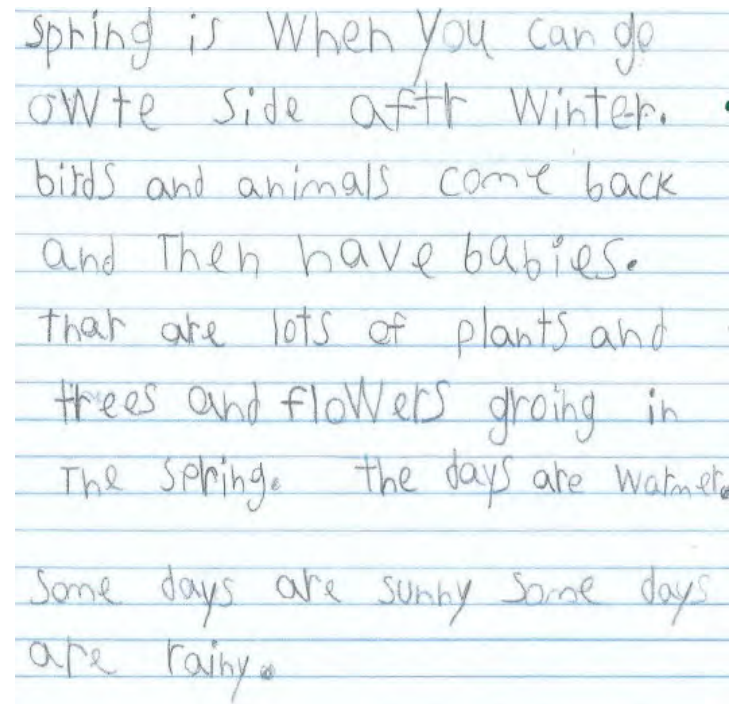 spring is When You can go
owte side aftr Winter.
birds and animals come back
and Then have babies.
thar are lots of plants and
trees and floWers groing in
The spring. the days are warmer.
Some days are sunny some days
are rainy.